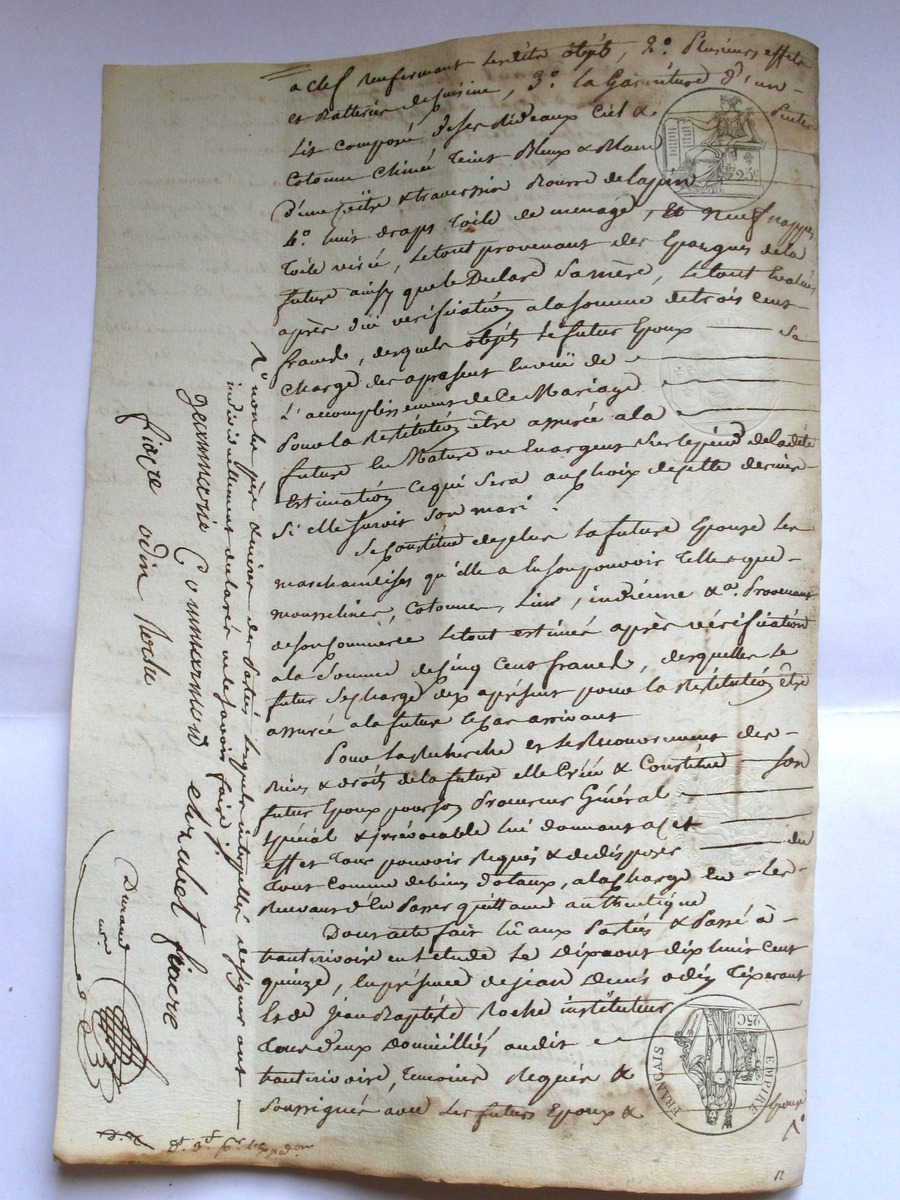 a clef renfermant lesdits objets, 2.° Plusieurs effets
et Batterie de Cuisine, 3.° la Garniture d'un
Lit composé de ses Rideaux Ciel &
Cotonne Chinée teint Bleux & Blanc
d'une & traversin Bourre de lapin
4.° huit draps toile de menage, Et neuf nappes
toile , le tout provenant des Epargnes de la
future ainsy que le Declare sa mère, le tout Evalués
après düe vérification a la somme de trois cent
francs, desquels objets le futur Epoux se
charge des apresent En vüe de
L'accomplissement de Ce Mariage
Pour la Restitution être assurée a la
future En Nature ou En argent sur le pied de ladite
Estimation ce qui sera au choix de cette dernière
Si elle survit son mari
Se Constitue de plus la future Epouse les
marchandises qu'elle a En son pouvoir telles que
mousselines, cotonne, , indienne &a. Provenant
de son Commerce le tout estimé après vérification
a la Somme de Cinq Cent francs, desquelles le
futur se charge dez aprésent pour la Restitution être
assurée a la future le cas arrivant
Pour la Recherche et le Recouvrement des
Biens & droits de la future elle Créé & Constitue son
futur Epoux pour son Procureur Général
spécial & irrévocable lui donnant a cet
effet tous pouvoir Requis & de disposer du
tout comme de biens dotaux, a la charge En les
Recevant d'En Passer quittance authentique
Dont acte fait lû aux Parties & Passé à
hauterivoire en l'etude le dix aout dix huit cent
quinze, En présence de jean Denis odin
Et de Jean Baptiste Roche instituteur
Tous deux Domiciliés audit
hauterivoire, temoins Requis &
Soussignés avec les futurs Epoux &
non le père & mère des Parties lesquels interpellés de signer ont
individuellement declarés ne savoir faire
jeanmarie Commarmond elizabet fiacre
fiacre odin Roche
Durand
EMPIRE FRANÇAIS
25C
25c
12